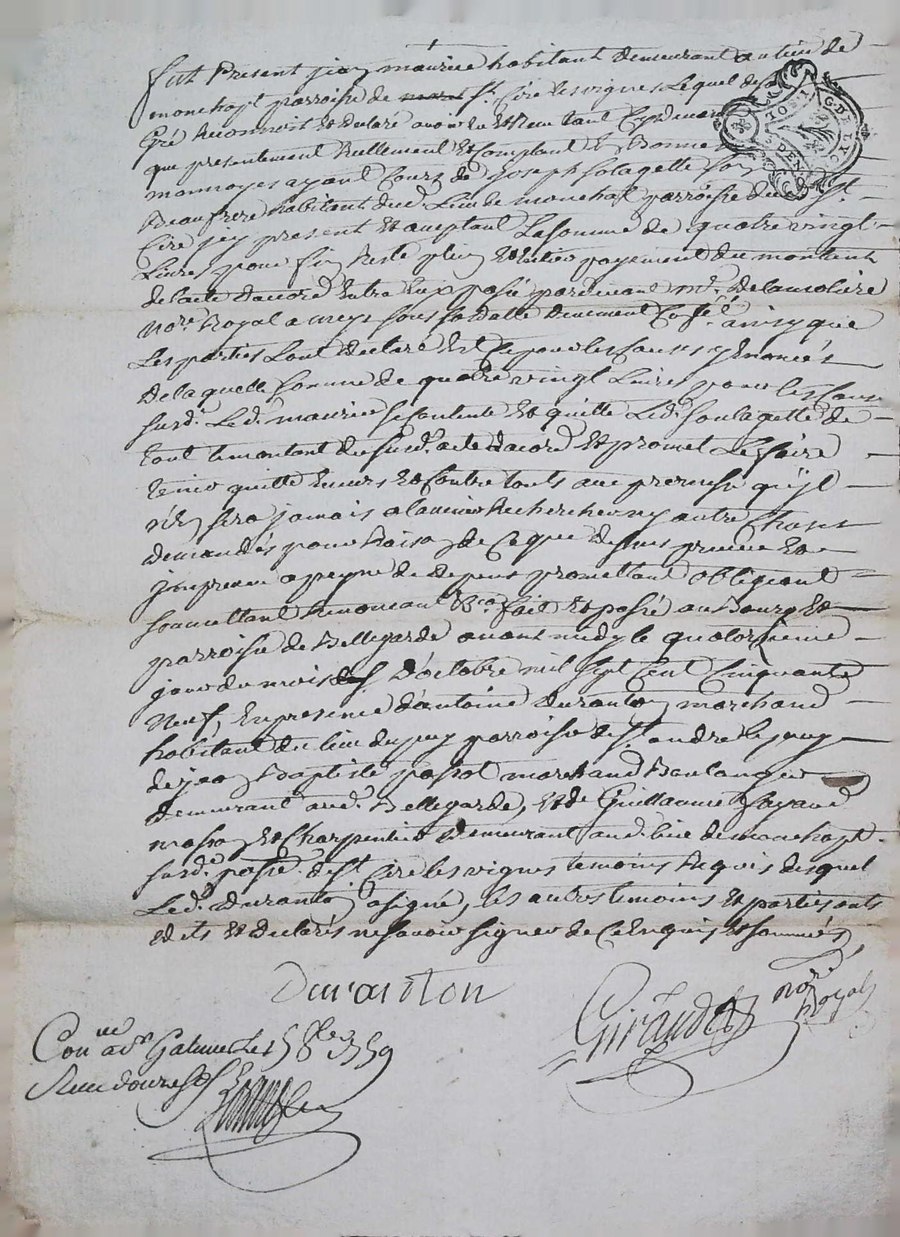 fut Present jean maurice habitant demeurant au lieu de
monchapt parroisse de st. Cire les vignes Lequel de
Gré Reconnoit Et declaré avoir eu Et Reçu tant Cy devant
que presentement Reellement Et Comptant En Bonne
monnoyes ayant Cours de Joseph Solagette son
Beaufrere habitant dud. Lieu de monchap parroisse dud. St.
Cire jcy present Et acceptant La somme de quatre vingt
Livres pour fin Reste plein Et Entier payement du montent
de lacte dacord Entre Eux passé pardevant Me.
Nore Royal sous sa datte duement Coñ.lé ainsy que
Les parties Lont declaré Et Ce pour les Causes y Enoncés
de laquelle somme de quatre vingt Livres pour les Causes
susd. Led. maurice se Contente Et quitte Led. Soulagette de
tout le montant du susd. acte dacord Et promet Le faire
tenir quitte Envers Et Contre touts avec promesse qu'jl
n'En sera jamais a lavenir Recherché ny autre Chose
demandés pour Raison de Ce que dessus
a peyne de depens promettant obligeant
soumettant Renonceant &ca fait Et passé au Bourg Et
parroisse de Bellegarde avant midy le quatorzieme
jour du mois D'octobre mil sept Cent Cinquante
Neuf, En presence d'antoine Duranton marchand
habitant du lieu du puy parroisse de st. andre le puy
de jean Baptiste passot marchand Boulanger
demeurant aud. Bellegarde, Et de Guillaume Fayard
masson Et Charpentier demeurant aud. lieu de monchapt
susd. parsse. de st. Cire les vignes temoins Requis desquel
Led. duranton a signé, les autres temoins Et parties ont
dit Et declarés ne savoir signer de Ce Enquis Et sommés
Duranton
Giraudet
nore.
Royal
Con.lle a St Galmier le 15 8bre 1759